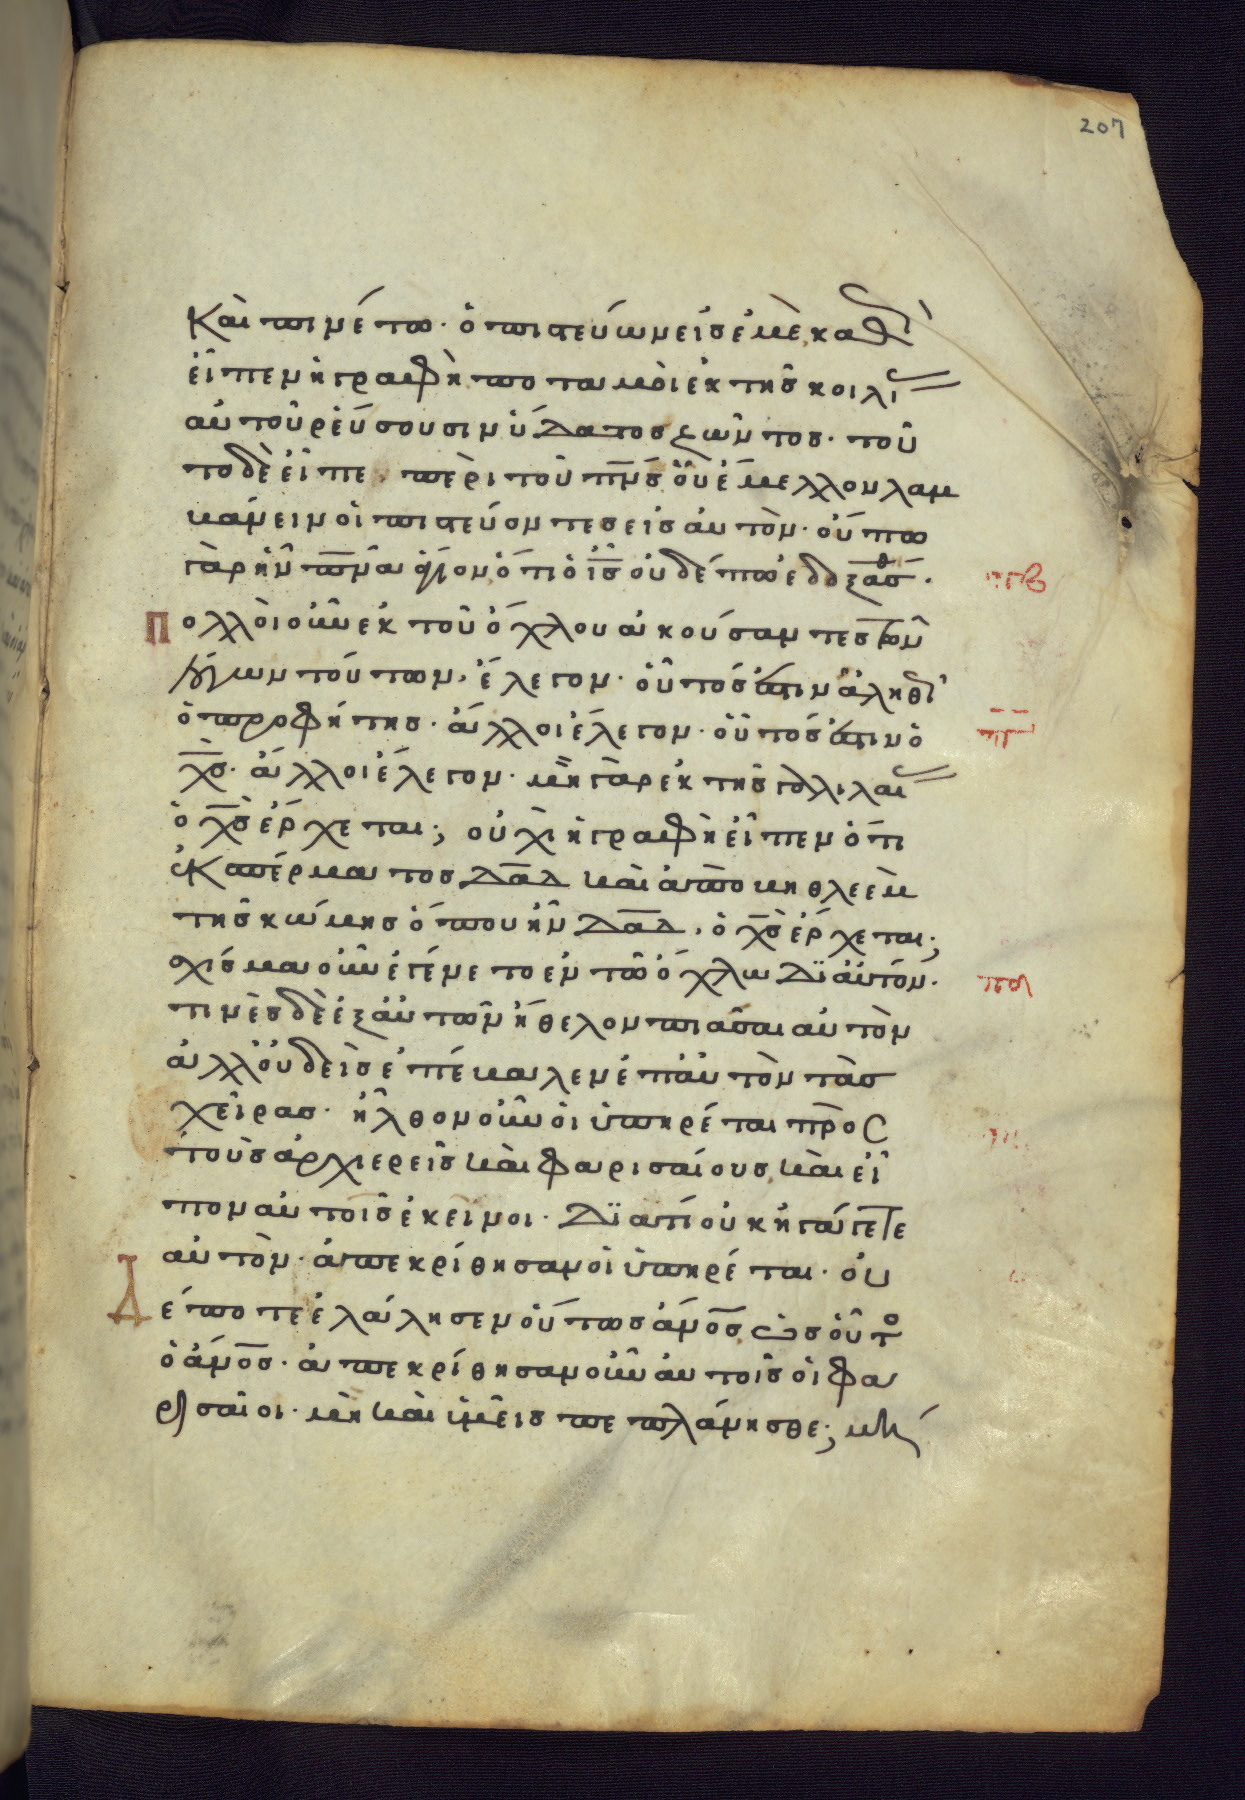 207
Καὶ πινέτω· ὁ πιστεύων εἰς ἐμὲ, καθ
εἶπεν ἡ γραφὴ, ποταμοὶ ἐκ τῆς κοιλι
αὐτοῦ ῥεύσουσιν ὕδατος ζῶντος· τοῦ
το δὲ εἶπε, περὶ τοῦ πν̅ς οὗ ἔμελλον λαμ
βάνειν οἱ πιστεύοντες εἰς αὐτὸν· οὔπω
γὰρ ἦν πν̅α ἅγιον ὅτι ὁ ις̅ οὐδέπω ἐδοξάσθ·
πβ
Πολλοὶ οὖν ἐκ τοῦ ὄχλου ἀκούσαντες τῶν
λόγων τούτων, ἔλεγον· οὗτός ἐστιν ἀληθ
ὁ προφήτης· ἄλλοι ἔλεγον· οὗτός ἐστιν ὁ
χς̅· ἄλλοι ἔλεγον· μὴ γὰρ ἐκ τῆς γαλιλαι
ὁ χς̅ ἔρχεται; οὐχὶ ἡ γραφὴ εἶπεν ὅτι
ἐκ σπέρματος δα̅δ καὶ ἀπὸ βηθλεὲμ
τῆς κώμης ὅπου ἦν δα̅δ, ὁ χς̅ ἔρχεται;
σχίσμα οὖν ἐγένετο ἐν τῶ ὄχλω δι αὐτόν·
πα
τινὲς δὲ ἐξ αὐτῶν ἤθελον πιάσαι αὐτὸν
ἀλλ' οὐδεὶς ἐπέβαλεν ἐπ' αὐτὸν τὰς
χεῖρας· ἦλθον οὖν οἱ ὑπηρέται πρὸς
τοὺς ἀρχιερεῖς καὶ φαρισαίους, καὶ εἶ
πον αὐτοῖς ἐκεῖνοι· διατί οὐκ ἠγάγετε
αὐτὸν· ἀπεκρίθησαν οἱ ὑπηρέται· οὐ
δέποτε ἐλάλησεν οὕτως ἄν̅ος ὡς οὗτο
ὁ ἄν̅ος· ἀπεκρίθησαν οὖν αὐτοῖς οἱ φα
ρισαῖοι· μὴ καὶ ὑμεῖς πεπλάνησθε; μή